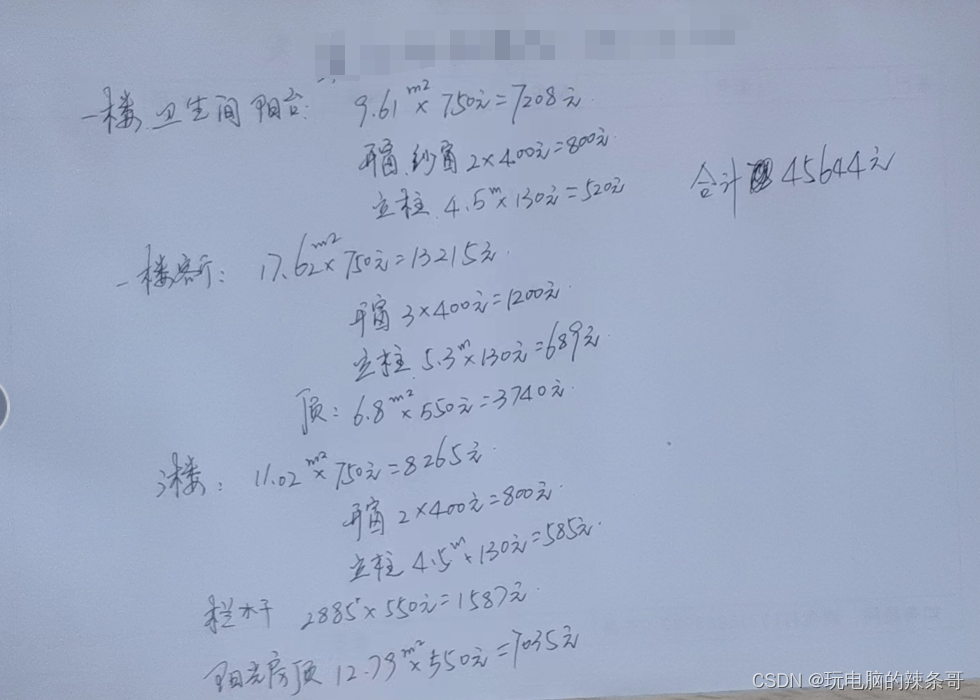 一楼卫生间阳台: 9.61m²×750元=7208元
平窗纱窗2×400元=800元
立柱4.5m×130元=520元
合计45644元
一楼客厅: 17.62m²×750元=13215元
平窗3×400元=1200元
立柱5.3m×130元=689元
顶: 6.8m²×550元=3740元
3楼: 11.02m²×750元=8265元
平窗2×400元=800元
立柱4.5m×130元=585元
栏水干2885×550元=1587元
阳光房顶12.79m²×550元=7035元
CSDN @玩电脑的辣条哥